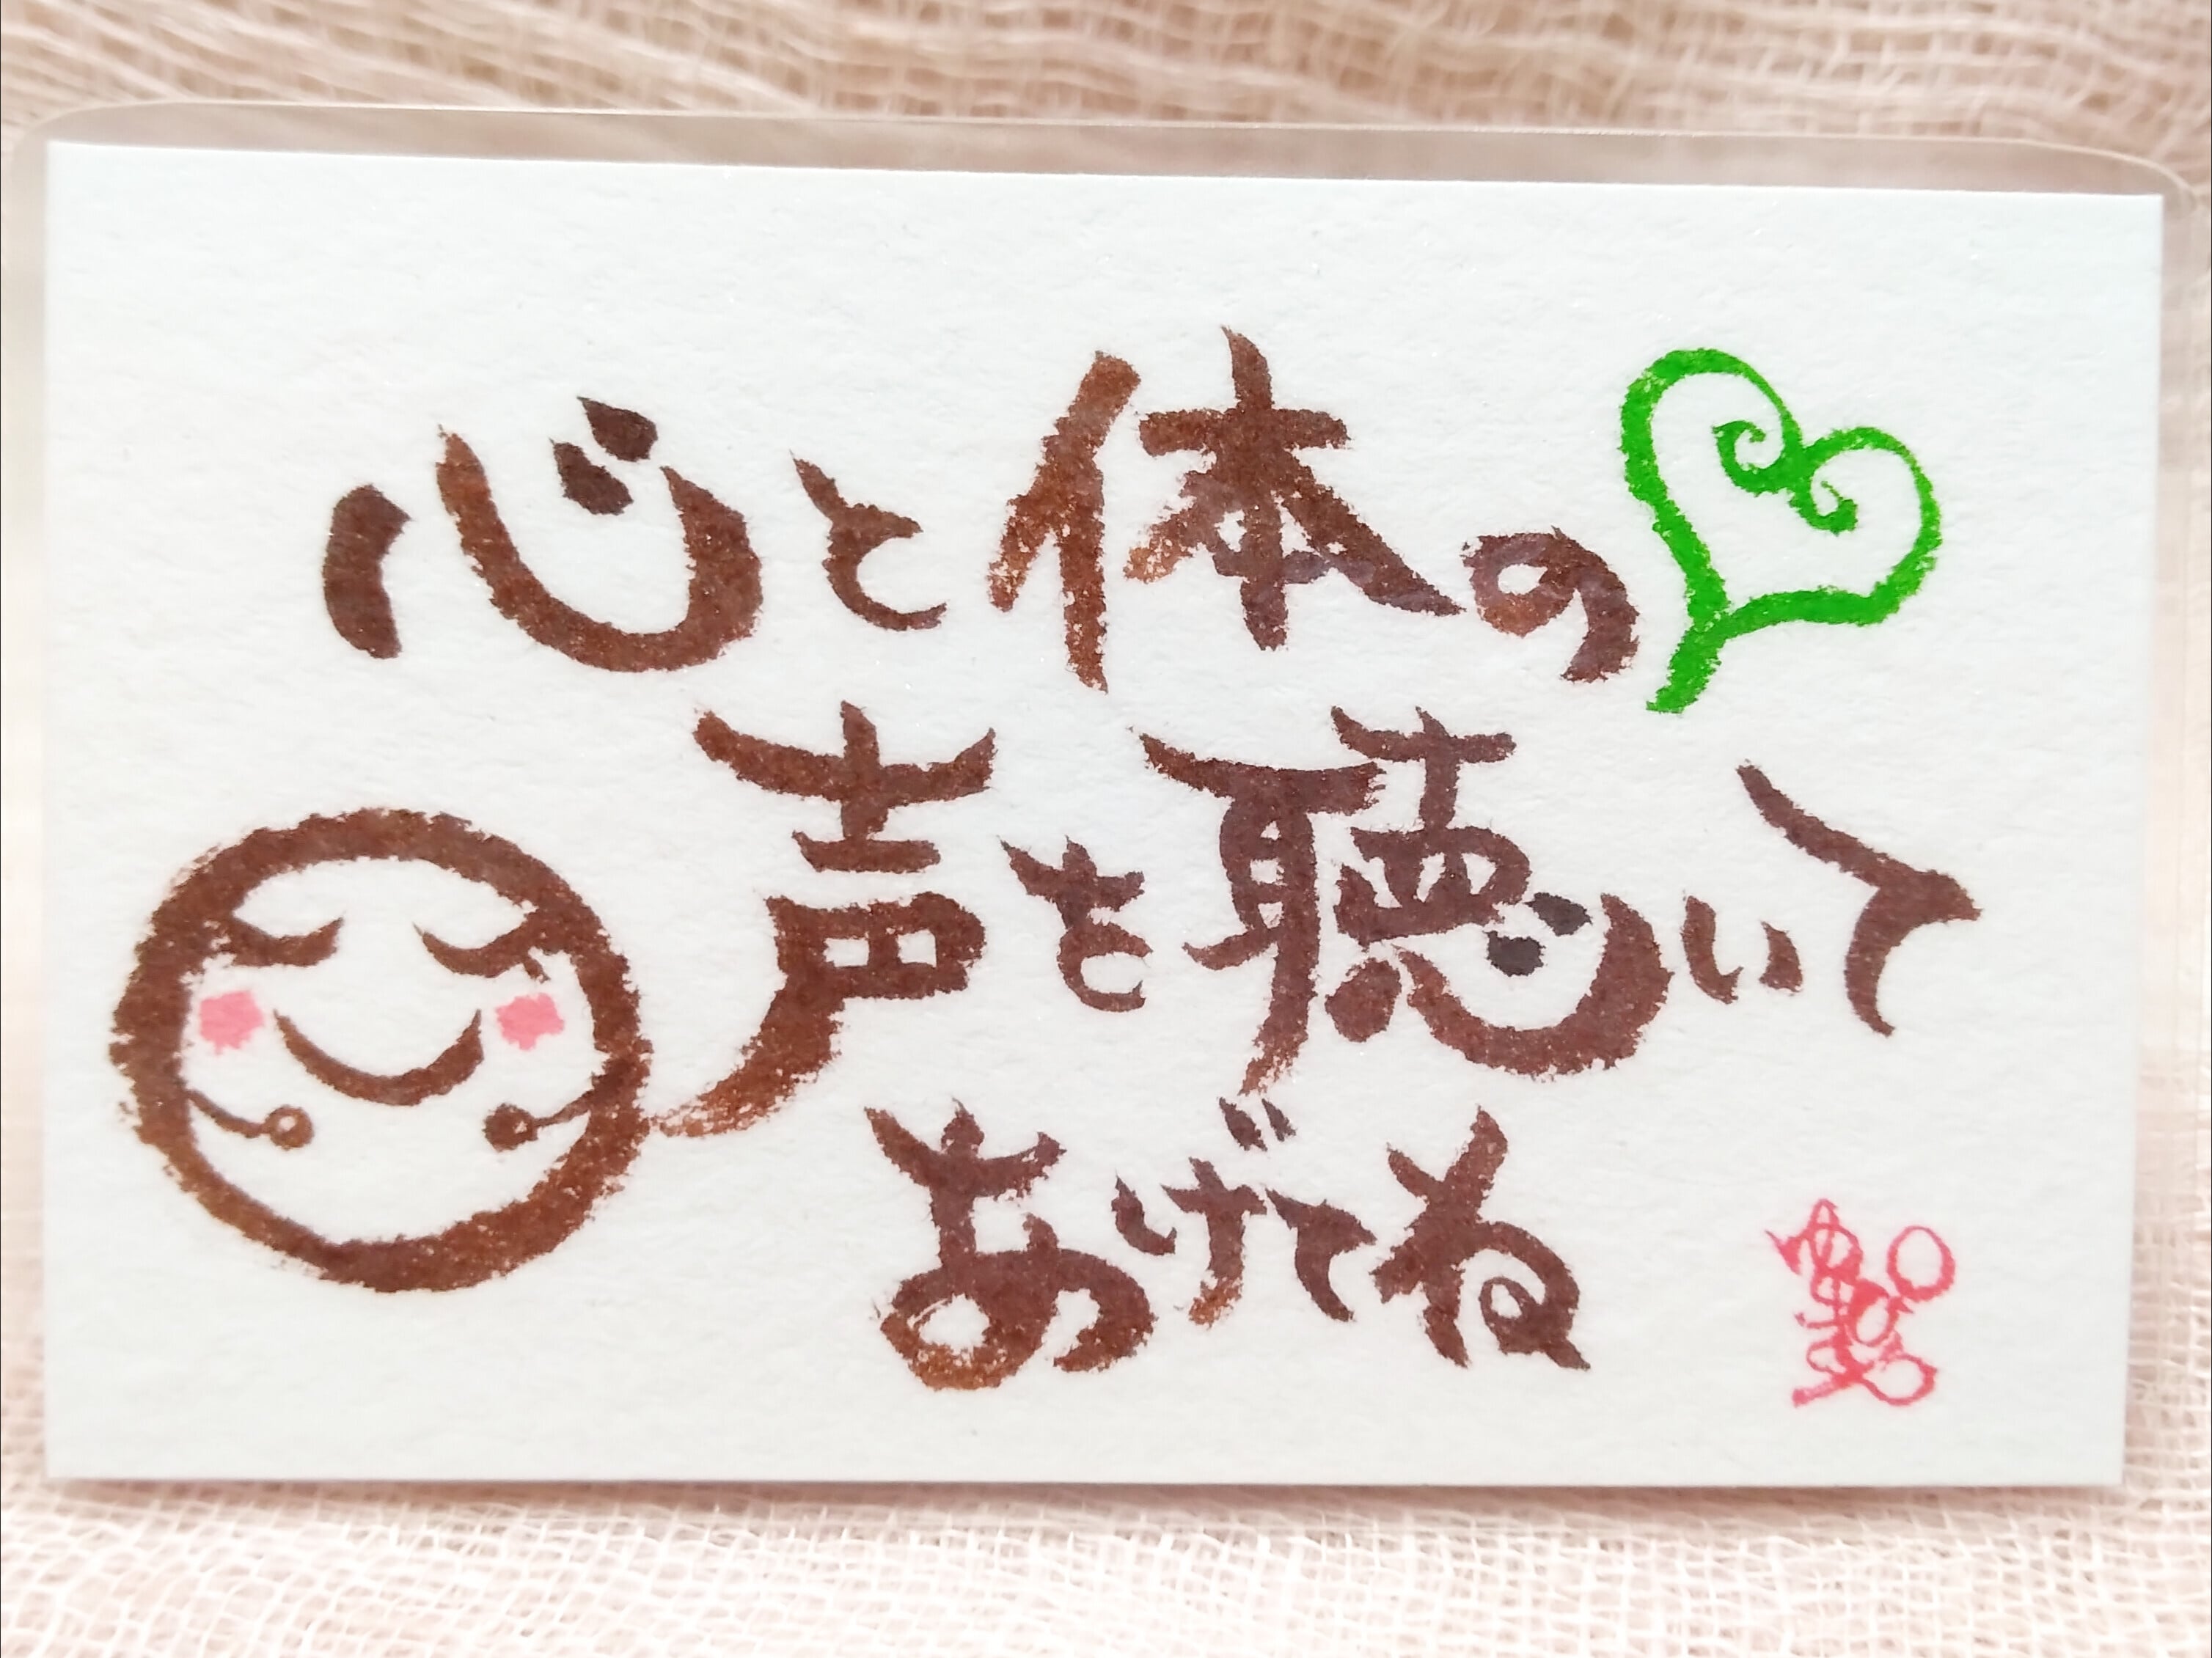 心と体の
声を聴いて
あげてね